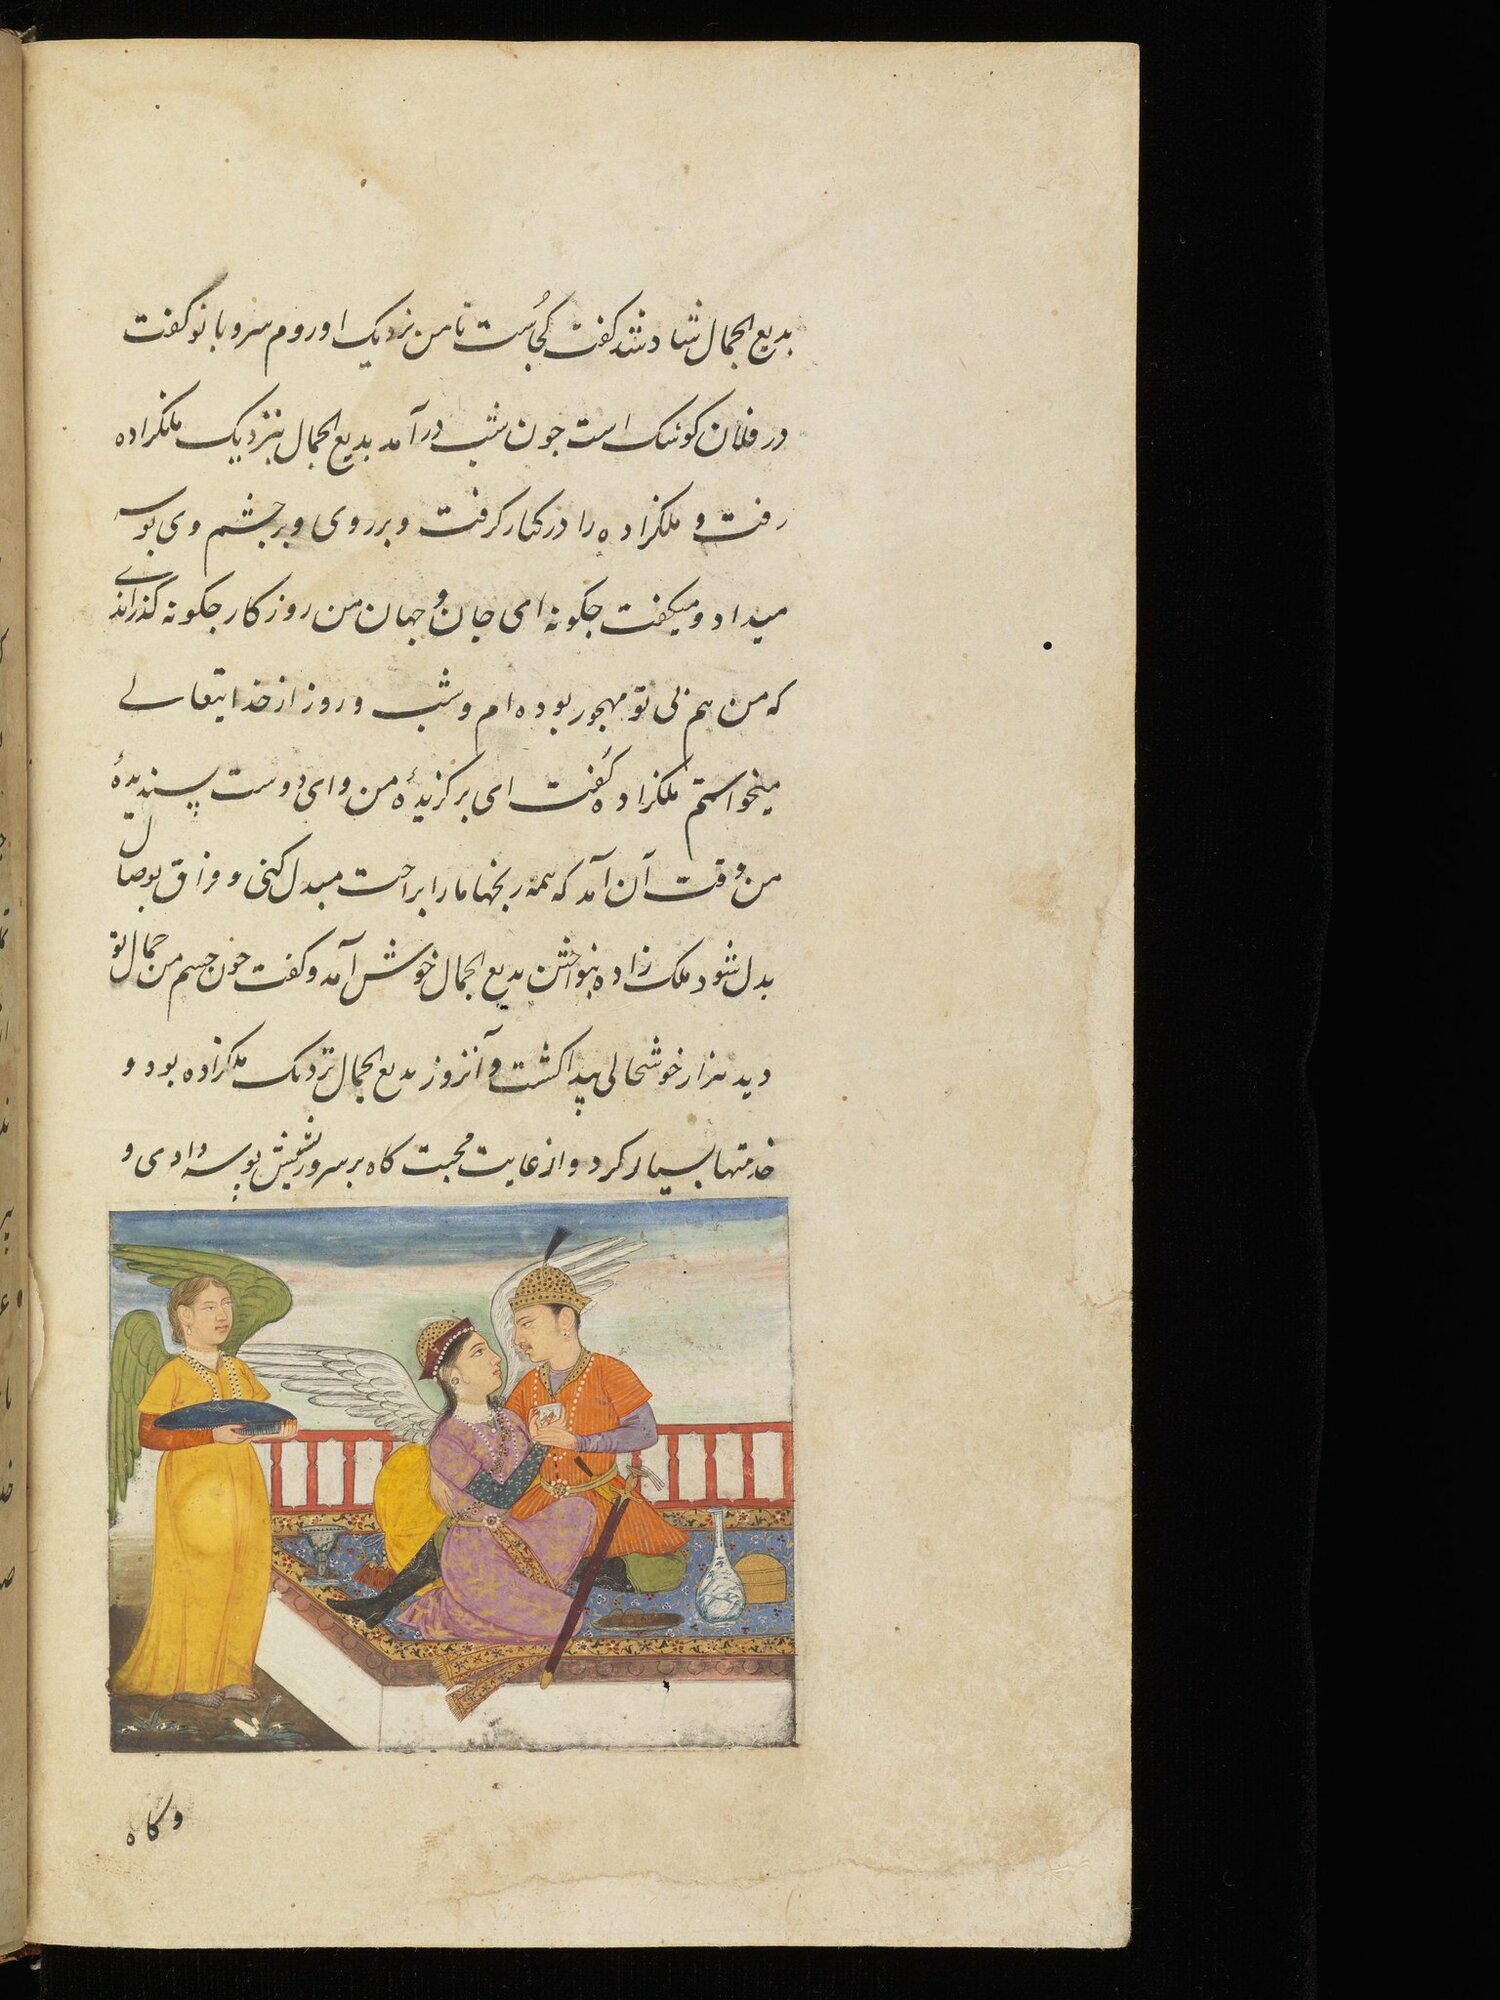 بدیع الجمال شاد شد کفت کجاست تا من نزدیک او روم سرو بانو کفت
در فلان کوشک است جون شب درآمد بدیع الجمال بنزدیک ملکزاده
رفت و ملکزاده را در کنار کرفت و بر روی و بر چشم وی بوسه
میداد و میکفت جکونه ای جان و جهان من روزکار جکونه کذراندی
که من هم بی تو مهجور بوده ام و شب و روز از خدایتعالی
میخواستم ملکزاده کفت ای برکزیدهٔ من و ای دوست پسندیدهٔ
من وقت آن آمد که همه رنجها مارا براحت مبدل کنی و فراق بوصال
بدل شود ملک زاده بنواختن بدیع الجمال خوش آمد و کفت جون جسم من جمال تو
دید هزار خوشحالی پیدا کشت و آنروز بدیع الجمال نزدیک ملکزاده بود و
خدمتها بسیار کرد و از غایت محبت کاه بر سر و ریشش بوسه دادی و
وکاه